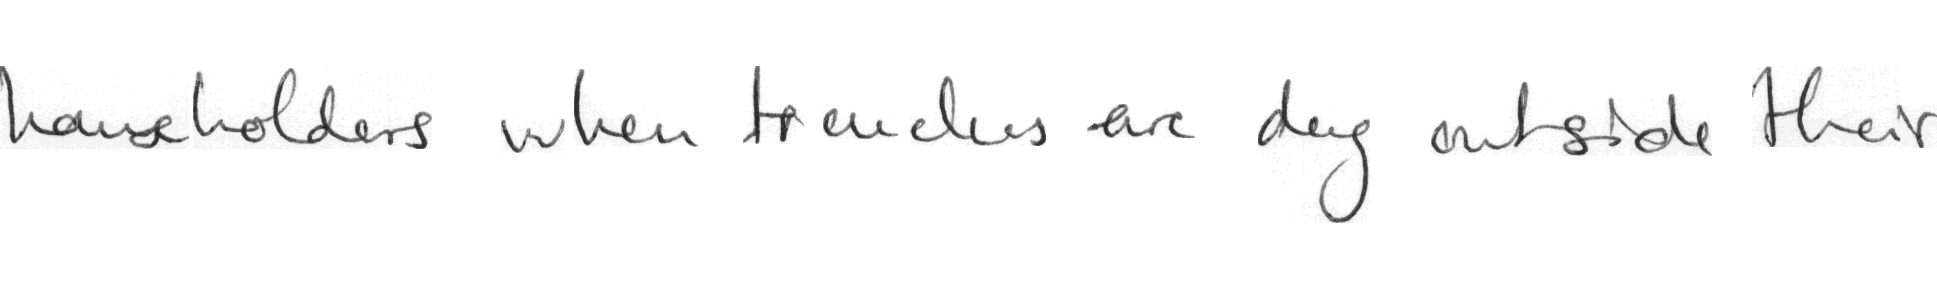 householders when trenches are dug outside their